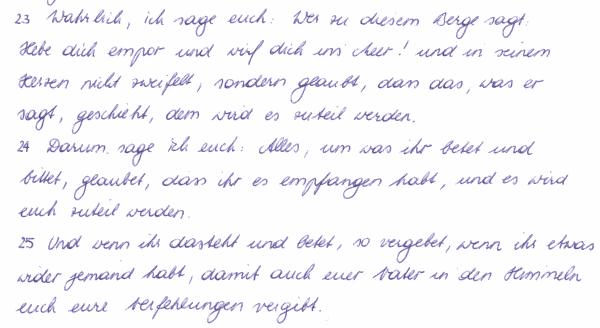 23 Wahrlich, ich sage euch: Wer zu diesem Berge sagt:
Hebe dich empor und wirf dich ins Meer! und in seinem
Herzen nicht zweifelt, sondern glaubt, dass das, was er
sagt, geschieht, dem wird es zuteil werden.
24 Darum sage ich euch: Alles, um was ihr betet und
bittet, glaubet, dass ihr es empfangen habt, und es wird
euch zuteil werden.
25 Und wenn ihr dasteht und betet, so vergebet, wenn ihr etwas
wider jemand habt, damit auch euer Vater in den Himmeln
euch eure Verfehlungen vergibt.